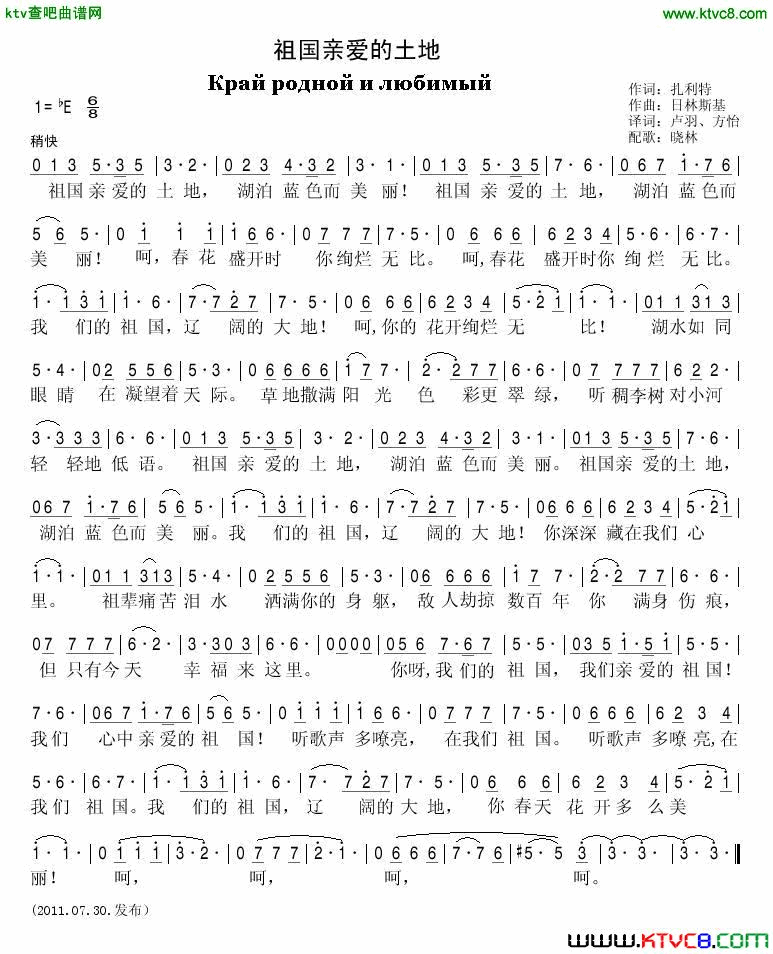 ktv查吧曲谱网 www.ktvc8.com
祖国亲爱的土地
Край родной и любимый
作词：扎利特
1=♭E 6/8 作曲：日林斯基
译词：卢羽、方怡
稍快 配歌：晓林
0 1 3 5·3 5 | 3·2· | 0 2 3 4·3 2 | 6·1· | 0 1 3 5·3 5 | 7·6· | 0 6 7 1·7 6 |
祖国 亲 爱的 土 地， 湖泊 蓝色而 美 丽！ 祖国 亲 爱的 土 地， 湖泊 蓝色而
5 6 5· | 0 1 1 1 | 1 6 6· | 0 7 7 7 | 5·6· | 0 6 6 6 | 6 2 3 4 | 5·6· | 6·7· |
美 丽！ 呵，春 花 盛开时 你绚烂 无 比。 呵,春花 盛开时你 绚 烂 无 比。
1· 1 3 1 | 1·6· | 7·7 2 7 | 7·5· | 0 6 6 6 | 6 2 3 4 | 5·2 1 | 1·1· | 0 1 1 3 1 3 |
我 们的 祖 国，辽 阔的 大 地！ 呵,你的 花开绚烂 无 比！ 湖水如 同
5·4· | 0 2 5 5 6 | 5·3· | 0 6 6 6 6 6 | 1·7· | 2·2 7 7 | 6·6· | 0 7 7 7 7 | 6 2 2· |
眼 睛 在 凝望着 天 际。 草地撒满 阳 光 色 彩更 翠 绿， 听 稠李树 对小河
3·3 3 3 | 6·6· | 0 1 3 5·3 5 | 3·2· | 0 2 3 4·3 2 | 3·1· | 0 1 3 5·3 5 | 7·6· |
轻 轻地 低 语。 祖国 亲 爱的 土 地， 湖泊 蓝色而 美 丽。 祖国亲 爱的 土 地，
0 6 7 1·7 6 | 5 6 5· | 1· 1 3 1 | 1·6· | 7·7 2 7 | 7·5· | 0 6 6 6 | 6 2 3 4 | 5·2 1 |
湖泊 蓝色而 美 丽。我 们的 祖 国，辽 阔的 大 地！ 你深深 藏在我们 心
1·1· | 0 1 1 1 3 1 3 | 5·4· | 0 2 5 5 6 | 5·3· | 0 6 6 6 6 | 1 7 7· | 2·2 7 7 | 6·6· |
里。 祖辈痛 苦 泪 水 洒满你的 身 躯， 敌 人劫掠 数百 年 你 满身 伤 痕，
0 7 7 7 7 | 6·2· | 3·3 0 3 | 6·6· | 0 0 0 0 | 0 5 6 7·6 7 | 5·5· | 0 3 5 1·5 1 | 5·5· |
但 只有今 天 幸 福来 这里。 你呀,我 们的 祖 国，我们亲 爱的 祖国！
7·6· | 0 6 7 1·7 6 | 5 6 5· | 0 1 1 1 | 1 6 6· | 0 7 7 7 | 7·5· | 0 6 6 6 | 6 2 3 4 |
我 们 心中 亲 爱的 祖 国！ 听歌声 多嘹亮， 在我们 祖 国。 听歌声 多嘹亮,在
5·6· | 6·7· | 1· 1 3 1 | 1·6· | 7·7 2 7 | 7·5· | 0 6 6 6 | 6 2 3 4 | 5·2 1 |
我 们 祖 国。我 们的 祖 国，辽 阔的 大 地， 你 春天 花 开多 么 美
1·1· | 0 1 1 1 | 3·2· | 0 7 7 7 | 2·1· | 0 6 6 6 | 7·7 6 | #5·5 3 | 3·3· | 3·3· ‖
丽！ 呵， 呵， 呵， 呵。
(2011.07.30.发布）
www.KTVC8.com